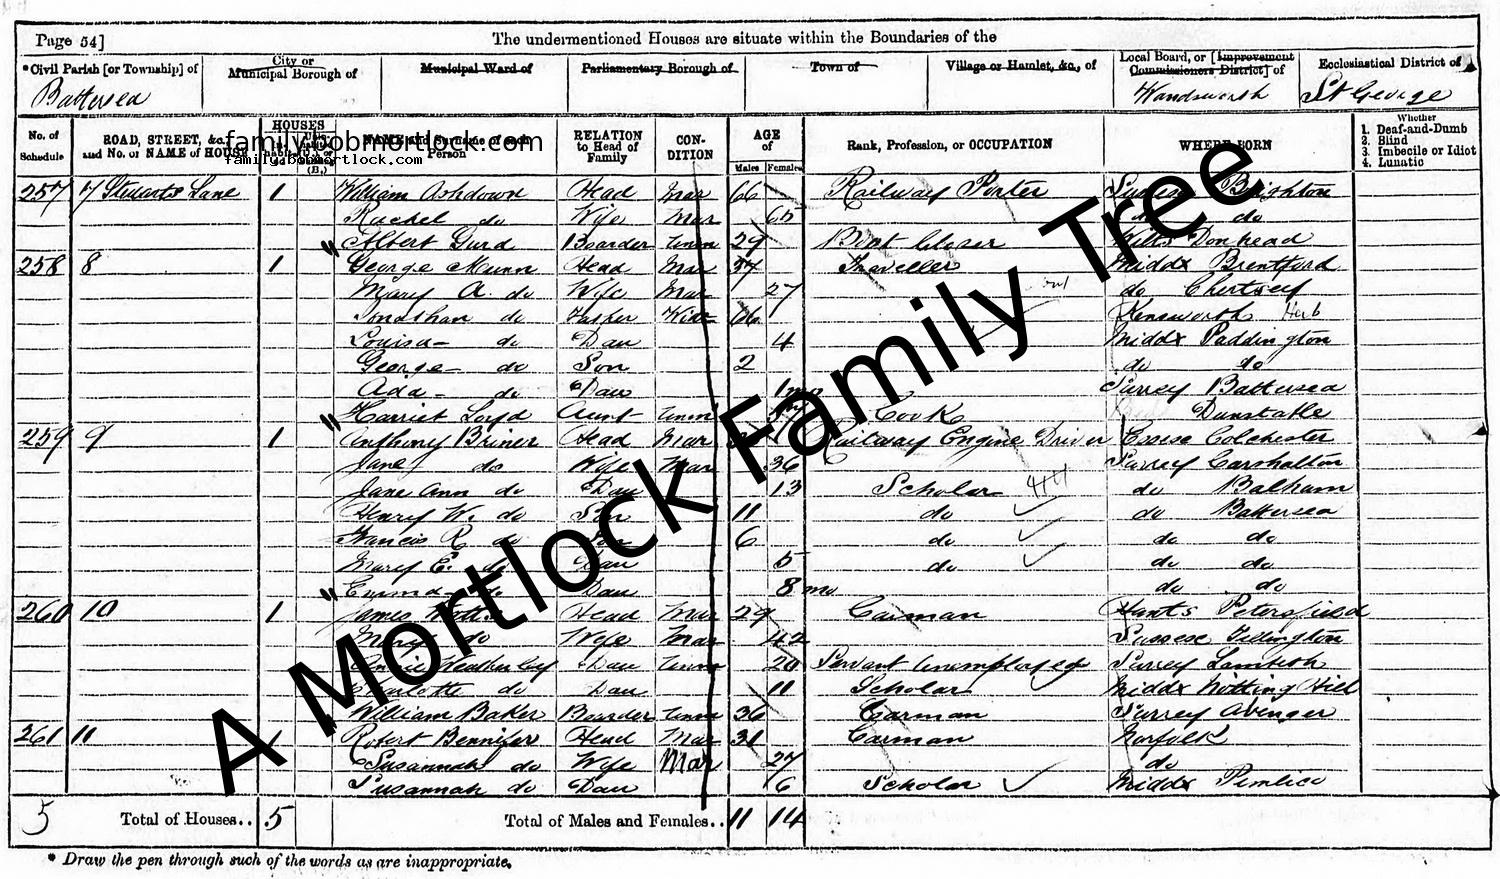 Page 54]
The undermentioned Houses are situate within the Boundaries of the
*Civil Parish [or Township] of
City or Municipal Borough of
Municipal Ward of
Parliamentary Borough of
Town of
Village or Hamlet, &c., of
Local Board, or [Improvement Commissioners District] of
Ecclesiastical District of
Battersea
Wandsworth
St George
No. of Schedule
ROAD, STREET, &c., and No. or NAME of HOUSE
HOUSES
NAME and Surname of each Person
RELATION to Head of Family
CON-DITION
AGE of
Males
Females
Rank, Profession, or OCCUPATION
WHERE BORN
Whether
1. Deaf-and-Dumb
2. Blind
3. Imbecile or Idiot
4. Lunatic
family.bobmortlock.com
family.bobmortlock.com
257 7 Stewarts Lane 1 William Ashdown Head Mar 66 Railway Porter Brighton
Rachel do Wife Mar 65 do do
Albert Gurd Boarder Unm 29 Wilts Donhead
258 8 1 George Munn Head Mar 37 Traveller Middx Brentford
Mary A. do Wife Mar 27 do Chertsey
Jonathan do Father 66 Kensworth Herb
Louisa do Dau 4 Middx Paddington
George do Son 2 do do
Ada do Dau 1 mo Surrey Battersea
Harriet Loyd Aunt Unm Cook Dunstable
259 9 1 Anthony Briner Head Mar Railway Engine Driver Essex Colchester
Jane do Wife Mar 36 Surrey Carshalton
Jane Ann do Dau 13 Scholar do Balham
Henry W. do Son 11 do do Battersea
Francis R do Son 6 do do do
Mary E. do Dau 5 do do do
Emma do Dau 8 mo do do
260 10 1 James Head Mar 29 Carman Hants Petersfield
Mary do Wife Mar 42 Sussex Tillington
Dau Unm 20 Servant Unemployed Surrey Lambeth
Charlotte do Dau 11 Scholar Middx Notting Hill
William Baker Boarder Unm 36 Carman Surrey Abinger
261 11 1 Robert Bennifer Head Mar 31 Carman Norfolk
Susannah do Wife Mar 27 do
Susannah do Dau 6 Scholar Middx Pimlico
5 Total of Houses.. 5 Total of Males and Females.. 11 14
* Draw the pen through such of the words as are inappropriate.
A Mortlock Family Tree